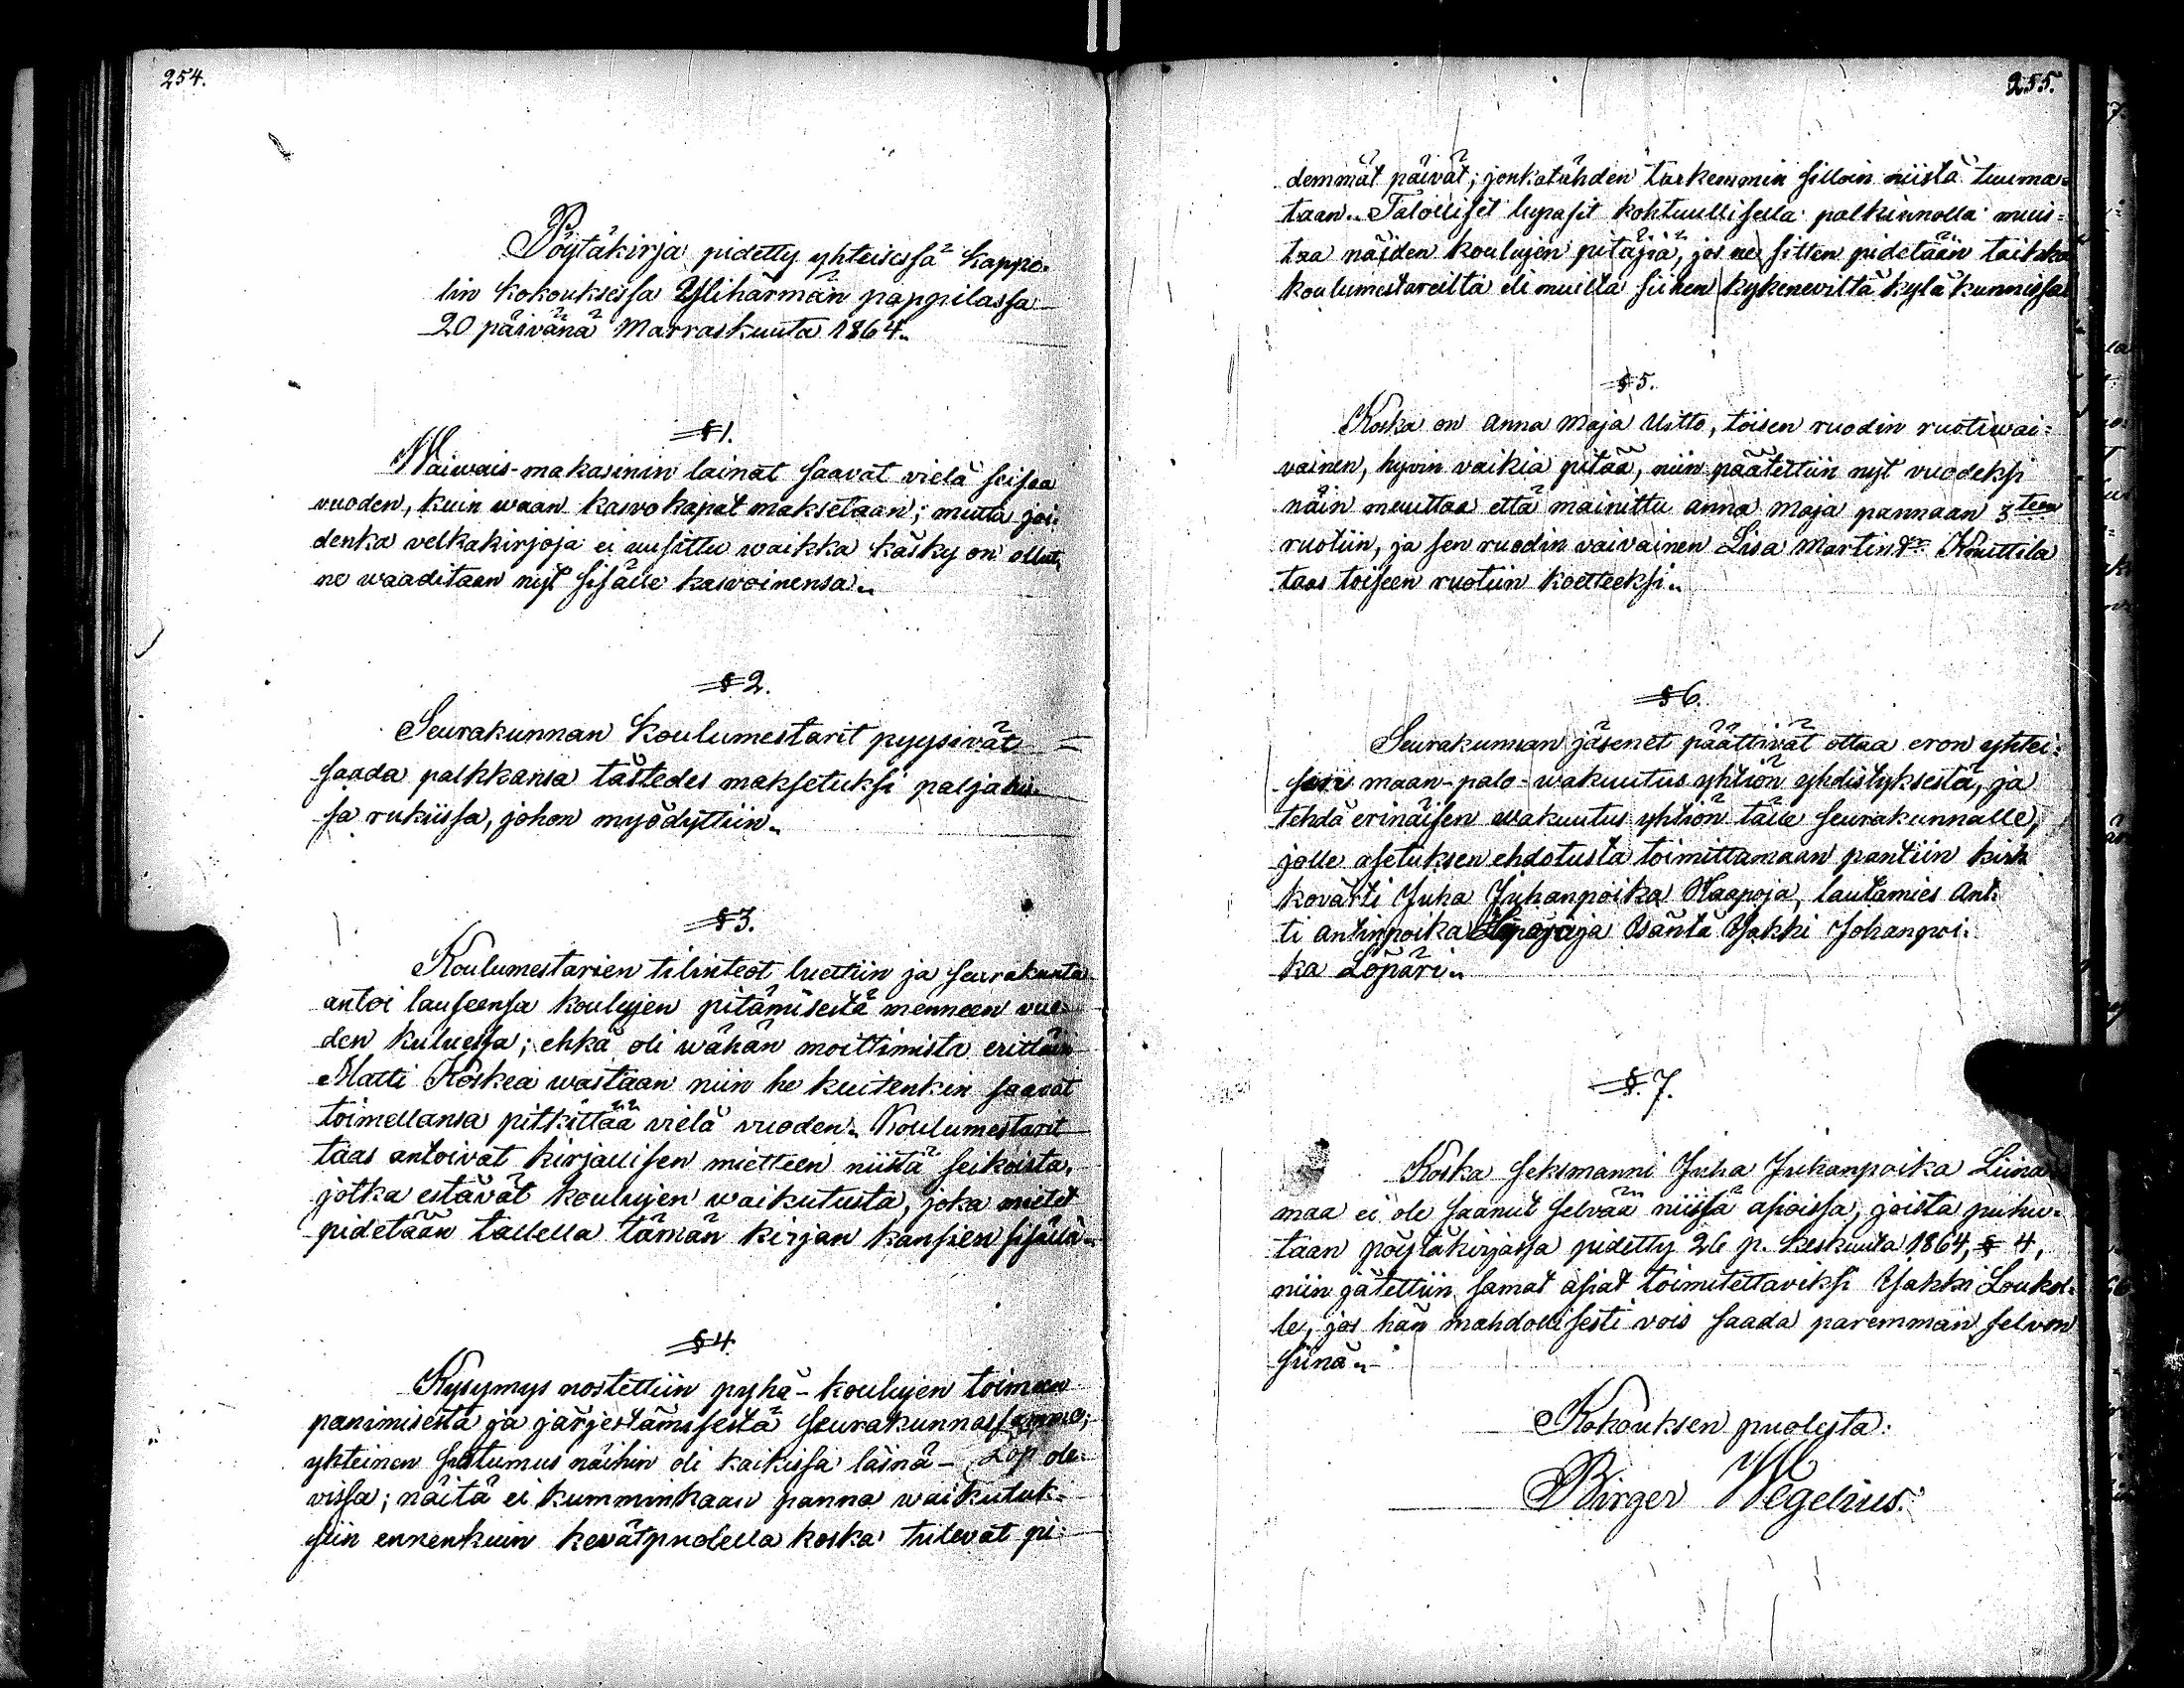 254.
Pöytäkirja pidetty yhteisessä kappe-
lin kokouksessa Ylihärmän pappilassa
20 päivänä Marraskuuta 1864.
§ 1.
Waiwais-makasinin lainat saavat vielä seisoa
vuoden, kuin waan kaswokapat maksetaan; mutta joi-
denka velkakirjoja ei uusittu waikka käsky on ollut,
ne waaditaan nyt sisälle kaswoinensa.
§ 2.
Seurakunnan Koulumestarit pyysivät
saada palkkansa tästedes maksetuksi paljahis-
sa rukiissa, johon myödyttiin.
§ 3.
Koulumestarien tilinteot luettiin ja seurakunta
antoi lauseensa koulujen pitämisestä menneen vuo-
den kuluessa; ehkä oli wähän moittimista erittäin
Matti Koskea wastaan niin he kuitenkin saavat
toimellansa pitkittää vielä vuoden. Koulumestarit
taas antoivat kirjallisen mietteen niistä seikoista,
jotka estävät koulujen waikutusta, joka mietet
pidetään tallella tämän kirjan kansien sisällä.
§ 4.
Kysymys nostettiin pyhä-koulujen toimeen
panimisesta ja järjestämisestä seurakunnassamme;
yhteinen suostumus näihin oli kaikissa läsnä- ole-
vissa; näitä ei kumminkaan panna waikutuk-
siin ennenkuin kevätpuolella koska tulevat pi-
255.
demmät päivät; jonkatähden tarkemmin silloin niistä tuuma-
taan. Talolliset lupasit kohtuullisella palkinnolla muis-
taa näiden koulujen pitäjiä, jos ne sitten pidetään taikka
koulumestareilta eli muilta siihen kykeneviltä kyläkunnissa
§ 5.
Koska on Anna Maja Uitto, toisen ruodin ruotiwai-
vainen, hyvin vaikia pitää, niin päätettiin nyt vuodeksi
näin muuttaa että mainittu Anna Maja pannaan 3teen
ruotiin, ja sen ruodin vaivainen Lisa Martind:r Knuittila
taas toiseen ruotiin koetteeksi.
§ 6.
Seurakunnan jäsenet päättivät ottaa eron yhtei-
sen maan-palo-wakuutus yhtiön yhdistyksestä, ja
tehdä erinäisen wakuutus yhtiön tälle seurakunnalle,
jolle asetuksen ehdotusta toimittamaan pantiin kirk
kovärti Juha Juhanpoika Haapoja, lautamies Ant-
ti Antinpoika ja Isäntä Jakki Johanpoi-
ka Löpäri.
§. 7.
Koska seksmanni Juha Juhanpoika Liina
maa ei ole saanut selvää niissä asioissa, joista puhu-
taan pöytäkirjassa pidetty 26 p. keskuuta 1864, § 4,
niin jätettiin samat asiat toimitettaviksi Jakki Loukol-
le, jos hän mahdollisesti vois saada paremman selvon
siinä.
Kokouksen puolesta:
Birger Wegelius.